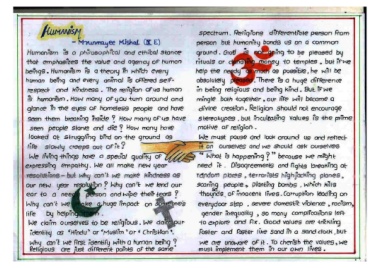 HUMANISM
- Mrunmayee Mishal (X E)
Humanism is a philosophical and ethical stance
that emphasizes the value and agency of human
beings. Humanism is a theory in which every
human being and every animal is offered self-
respect and kindness. The religion of us human
is humanism. How many of you turn around and
glance in the eyes of homeless people and have
seen them beaming inside? How many of us have
seen people starve and die? How many have
looked at struggling bird on the ground as
life slowly creeps out of it?
We living things have a special quality of
expressing empathy. We all make new year
resolutions - but why can't we make kindness as
our new year resolution? Why can't we lend our
ear to a needy person and wipe their tears?
Why can't we huge impact on someone's
life by helping
We claim ourselves to be religious. We
identity as "Hindu" or "Muslim" or "Christian".
Why can't we first identify with a human being?
Religions are just different points of the same
spectrum. Religions differentiate person from
person but humanity bonds us on a common
ground. God going to be pleased by
rituals or money to temples, but if we
help the as possible, he will be
absolutely There is a huge difference
in being religious and being kind. But if we
weight both together, our life will become a
divine creation. Religion should not encourage
stereotypes, but inculcating values is the prime
motive of religion.
We must pause and look around us and reflect
on ourselves and we should ask ourselves
"What is happening?" because we might
need it. Disagreements and fights breaking at
random places, terrorists highjacking planes,
scaring people, planting bombs, which kills
thousands of innocent lives. Corruption leading on
everydoor step, severe domestic violence, racism,
gender inequality, so many complications left
to explore and fix. Good values are whirling
faster and faster like sand in a sand clock, but
we are unaware of it. To cherish the values, we
must implement them in our own lives.